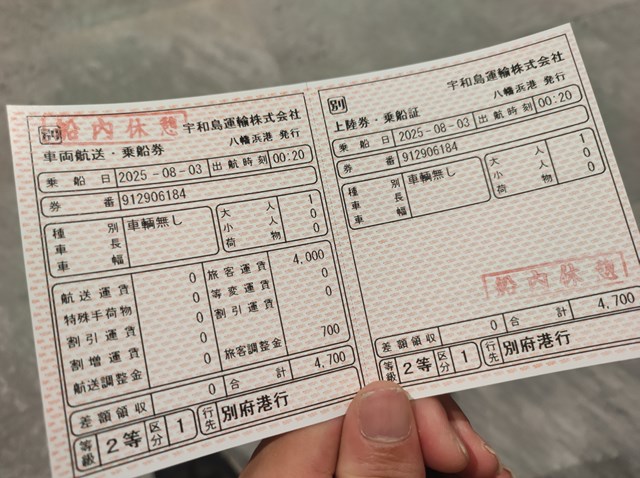 別
船内休憩
宇和島運輸株式会社
八幡浜港 発行
車両航送・乗船券
乗船日 2025-08-03 出航時刻 00:20
券番 912906184
種別 車輌無し
車長
車幅
大人 1
小人 0
荷物 0
航送運賃 0
特殊手荷物 0
割引運賃 0
割増運賃 0
航送調整金 0
旅客運賃 4,000
等変運賃 0
割引運賃 0
旅客調整金 700
差額領収 0 合計 4,700
等級 2等 区分 1 行先 別府港行
別
宇和島運輸株式会社
八幡浜港 発行
上陸券・乗船証
乗船日 2025-08-03 出航時刻 00:20
券番 912906184
種別 車輌無し
車長
車幅
大人 1
小人 0
荷物 0
船内休憩
差額領収 0 合計 4,700
等級 2等 区分 1 行先 別府港行